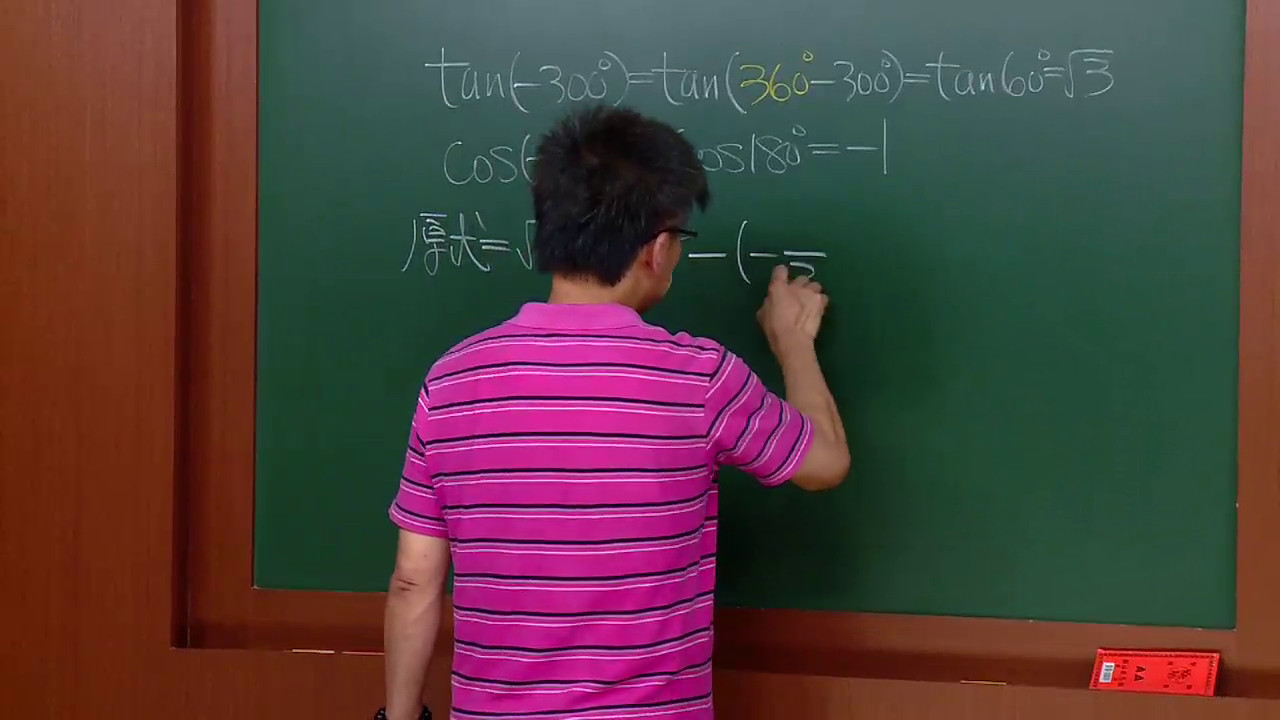 tan(-300°)=tan(360°-300°)=tan60°=√3
cos(- os180°=-1
原式=√ -(- 2
AA